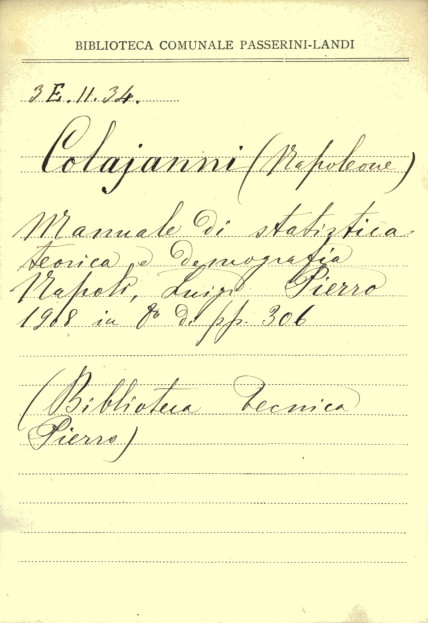 BIBLIOTECA COMUNALE PASSERINI-LANDI
3E.11.34.
Colajanni (Napoleone)
Manuale di statistica
teorica e demografia
Napoli, Luigi Pierro
1908 in 8º di pp. 306
(Biblioteca Tecnica
Pierro)